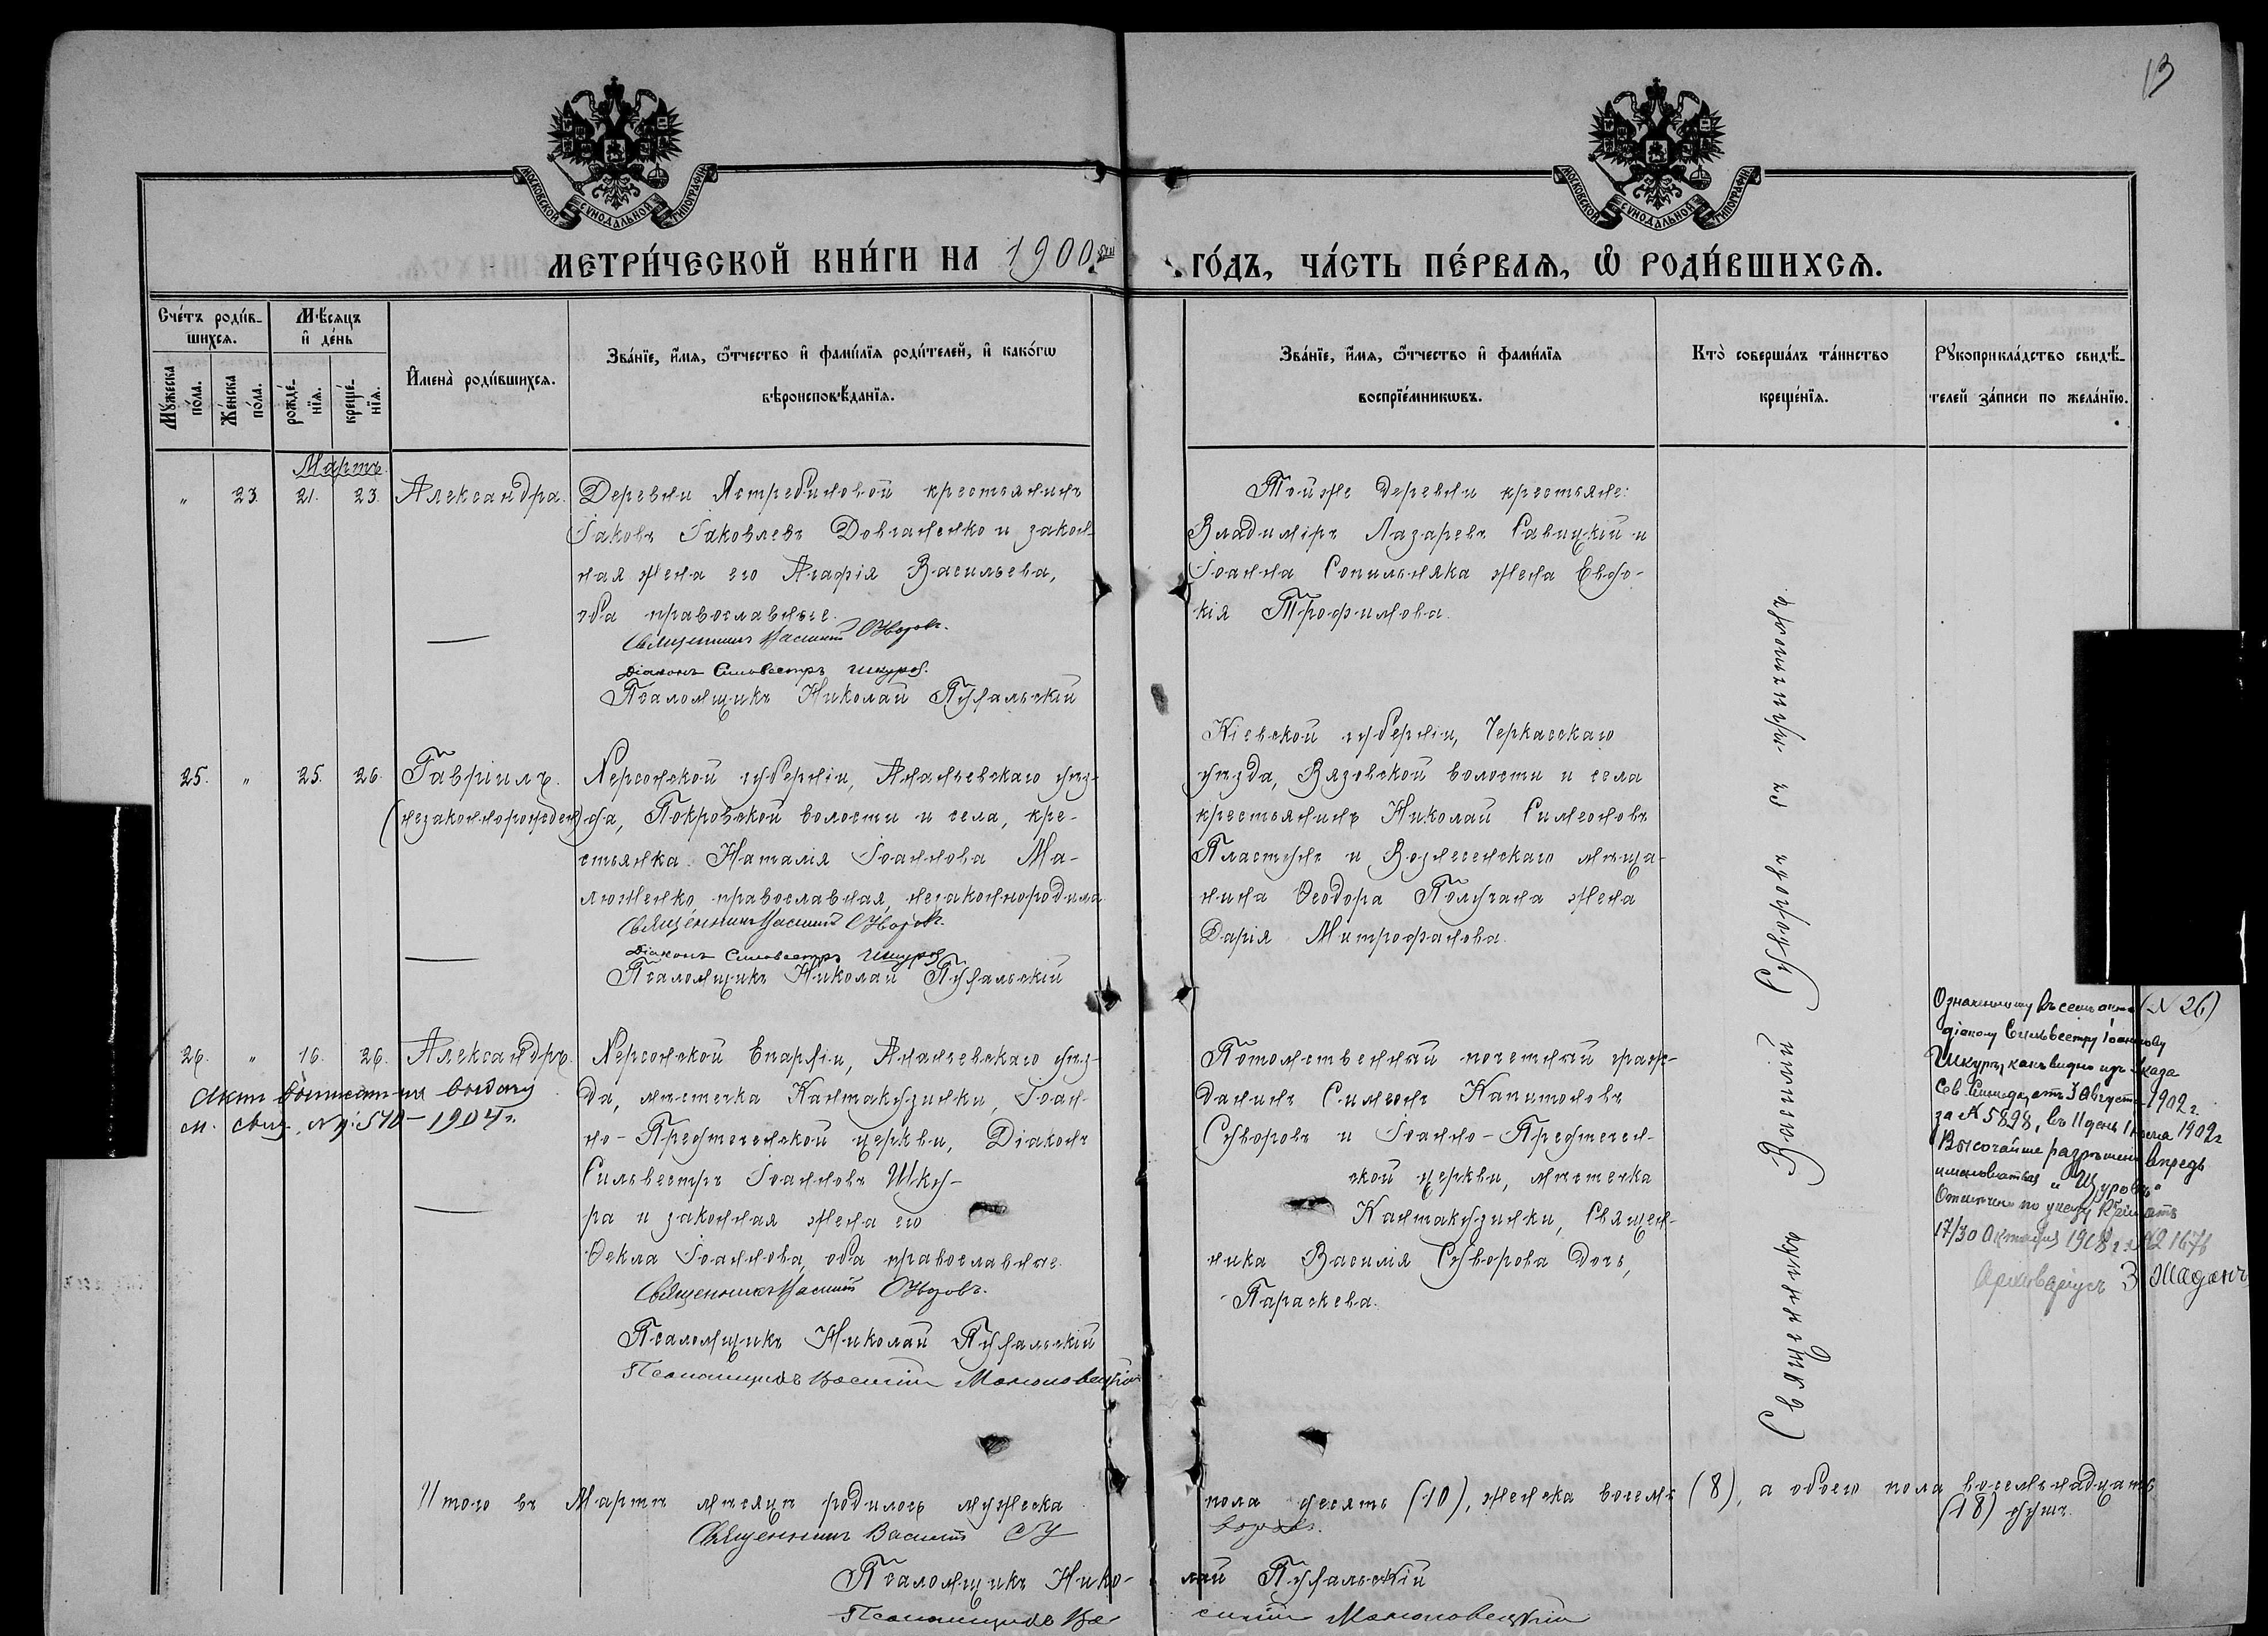 13
МОСКОВСКОЙ СѴНОДАЛЬНОЙ ТИПОГРАФІИ
МОСКОВСКОЙ СѴНОДАЛЬНОЙ ТИПОГРАФІИ
МЕТРИ́ЧЕСКОЙ КНИ́ГИ НА 1900 ГО́ДЪ, ЧА́СТЬ ПЕ́РВАѦ, Ѽ РОДИ́ВШИХСѦ.
Сче́тъ роди́в-
шихсѧ.
Мѣ́сѧцъ
и҆ де́нь
Мꙋ́жеска
по́ла.
Же́нска
по́ла.
рожде́-
нїѧ.
креще́-
нїѧ.
И҆мена̀ роди́вшихсѧ.
Зва́нїе, и҆́мѧ, ѻ҆́тчество и҆ фами́лїѧ роди́телей, и҆ како́гѡ
вѣроисповѣ́данїѧ.
Зва́нїе, и҆́мѧ, ѻ҆́тчество и҆ фами́лїѧ
воспрїе́мникѡвъ.
Кто̀ соверша́лъ та́инство
креще́нїѧ.
Рꙋкоприкла́дство свидѣ́-
телей за́писи по жела́нїю.
Мартъ
" 23. 21. 23. Александра.
Деревни Ястребиновой крестьянинъ
Іаковъ Іаковлевъ Довганенко и закон-
ная жена его Агафія Васильева,
оба православные.
Священникъ Василій Суворовъ.
Діаконъ Сильвестръ Шкура.
Псаломщикъ Николай Пугальскій
Тойже деревни крестьяне:
Владиміръ Лазаревъ Савицкій и
Іоанна Сопильняка жена Евдо-
кія Трофимова.
25. " 25. 26. Гавріилъ.
(незаконнорожден)
Херсонской губерніи, Ананьевскаго уѣз-
да, Покровской волости и села, кре-
стьянка Наталія Іоаннова Ма-
люженко православная, незаконнородила
Священникъ Василій Суворовъ.
Діаконъ Сильвестръ Шкура
Псаломщикъ Николай Пугальскій
Кіевской губерніи, Черкасскаго
уѣзда, Вязовской волости и села
крестьянинъ Николай Симеоновъ
Пластунъ и Вознесенскаго мѣща-
нина Ѳеодора Полугана жена
Дарія Митрофанова.
26. " 16. 26. Александръ.
Актъ выдану
м. свид. 510-1904 г.
Херсонской Епархіи, Ананьевскаго уѣз-
да, мѣстечка Кантакузинки, Іоан-
но-Предтеченской церкви, Діаконъ
Сильвестръ Іоанновъ Шку-
ра и законная жена его
Ѳекла Іоаннова, оба православные.
Священникъ Василій Суворовъ.
Псаломщикъ Николай Пугальскій
Псаломщикъ Василій
Потомственный почетный граж-
данинъ Симеонъ Капитоновъ
Суворовъ и Іоанно-Предтечен-
ской церкви, мѣстечка
Кантакузинки, Священ-
ника Василія Суворова дочь,
Параскева.
Священникъ Василій Суворовъ съ причтомъ.
Означенному въ семъ актѣ (№ 26)
діакону Сильвестру Іоаннову
Шкурѣ, какъ видно изъ Указа
Св. Синода, отъ 3 Августа 1902 г.
за № 5828, въ 11 день Іюня 1902 г
Высочайше разрѣшено впредь
именоваться "Щуровъ"
17/30 Октября 1918 г. № 21676
Архиваріусъ
Итого въ Мартѣ мѣсяцѣ родилось мужеска пола десять (10), женска восемь (8), а обоего пола восемьнадцать
(18) душъ.
Священникъ Василій Суворовъ.
Псаломщикъ Николай Пугальскій
Псаломщикъ Василій